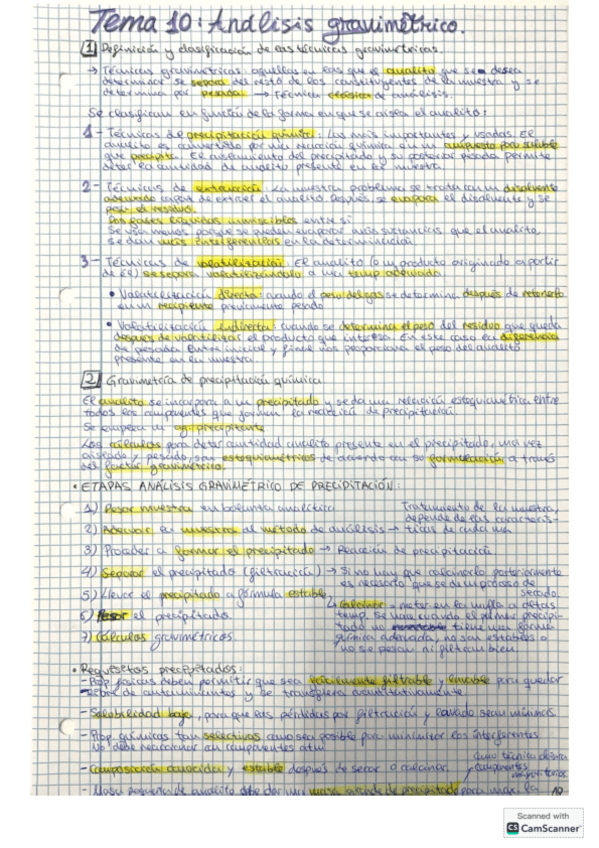 Tema 10: Análisis gravimétrico.
1 Definición y clasificación de las técnicas gravimétricas.
→ Técnicas gravimétricas aquellas en las que el analito que se desea
determinar se separa del resto de los constituyentes de la muestra y se
determina por pesada. → Técnica clásica de análisis.
Se clasifican en función de la forma en que se aísla el analito:
1- Técnicas de precipitación química: Las más importantes y usadas. El
analito es convertido por una reacción química en un compuesto poco soluble
que precipita. El aislamiento del precipitado y su posterior pesada permite
deter la cantidad de analito presente en la muestra.
2- Técnicas de extracción: La muestra problema se trata con un disolvente
adecuado capaz de extraer el analito. Después, se evapora el disolvente y se
pesa el residuo.
Dos fases líquidas inmiscibles entre sí
Se usa menos porque se pueden evaporar más sustancias que el analito,
se dan más interferencias en la determinación
3- Técnicas de volatilización: El analito (o un producto originado a partir
de él) se separa volatilizándolo a una temp adecuada
• Volatilización directa: cuando el peso del gas se determina después de retenerlo
en un recipiente previamente pesado
• Volatilización indirecta: cuando se determina el peso del residuo que queda
después de volatilizar el producto que interesa. En este caso la diferencia
de pesada entre inicial y final nos proporciona el peso del analito
presente en la muestra.
2 Gravimetría de precipitación química
El analito se incorpora a un precipitado y se da una relación estequiométrica entre
todos los componentes que forman la reacción de precipitación.
Se emplea un ag. precipitante
Los cálculos para deter cantidad analito presente en el precipitado, una vez
aislado y pesado, son estequiométricos de acuerdo con su formulación a través
del factor gravimétrico.
• ETAPAS ANÁLISIS GRAVIMÉTRICO DE PRECIPITACIÓN:
1) Pesar muestra en balanza analítica
2) Adecuar la muestra al método de análisis → Tratamiento de la muestra,
depende de las caracterís-
ticas de cada una
3) Proceder a formar el precipitado → Reacción de precipitación
4) Separar el precipitado (filtración) → Si no hay que calcinarlo posteriormente
es necesario que se de un proceso de
secado.
5) Llevar el precipitado a fórmula estable
↳ Calcinar = meter en la mufla a altas
temp. Se usa cuando el primer precipi-
tado no tiene una forma
química adecuada, no son estables o
no se pesan ni filtran bien
6) Pesar el precipitado
7) Cálculos gravimétricos
• Requisitos precipitados:
- Prop físicas deben permitir que sea fácilmente filtrable y lavable para quedar
libre de contaminantes y se transfiera cuantitativamente.
- Solubilidad baja, para que las pérdidas por filtración y lavado sean mínimas
- Prop químicas tan selectivas como sea posible para minimizar las interferentes
No debe reaccionar con componentes atm.
- Composición conocida y estable después de secar o calcinar.
- Masa pequeña de analito debe dar una masa grande de precipitado para
19
Scanned with
CS CamScanner